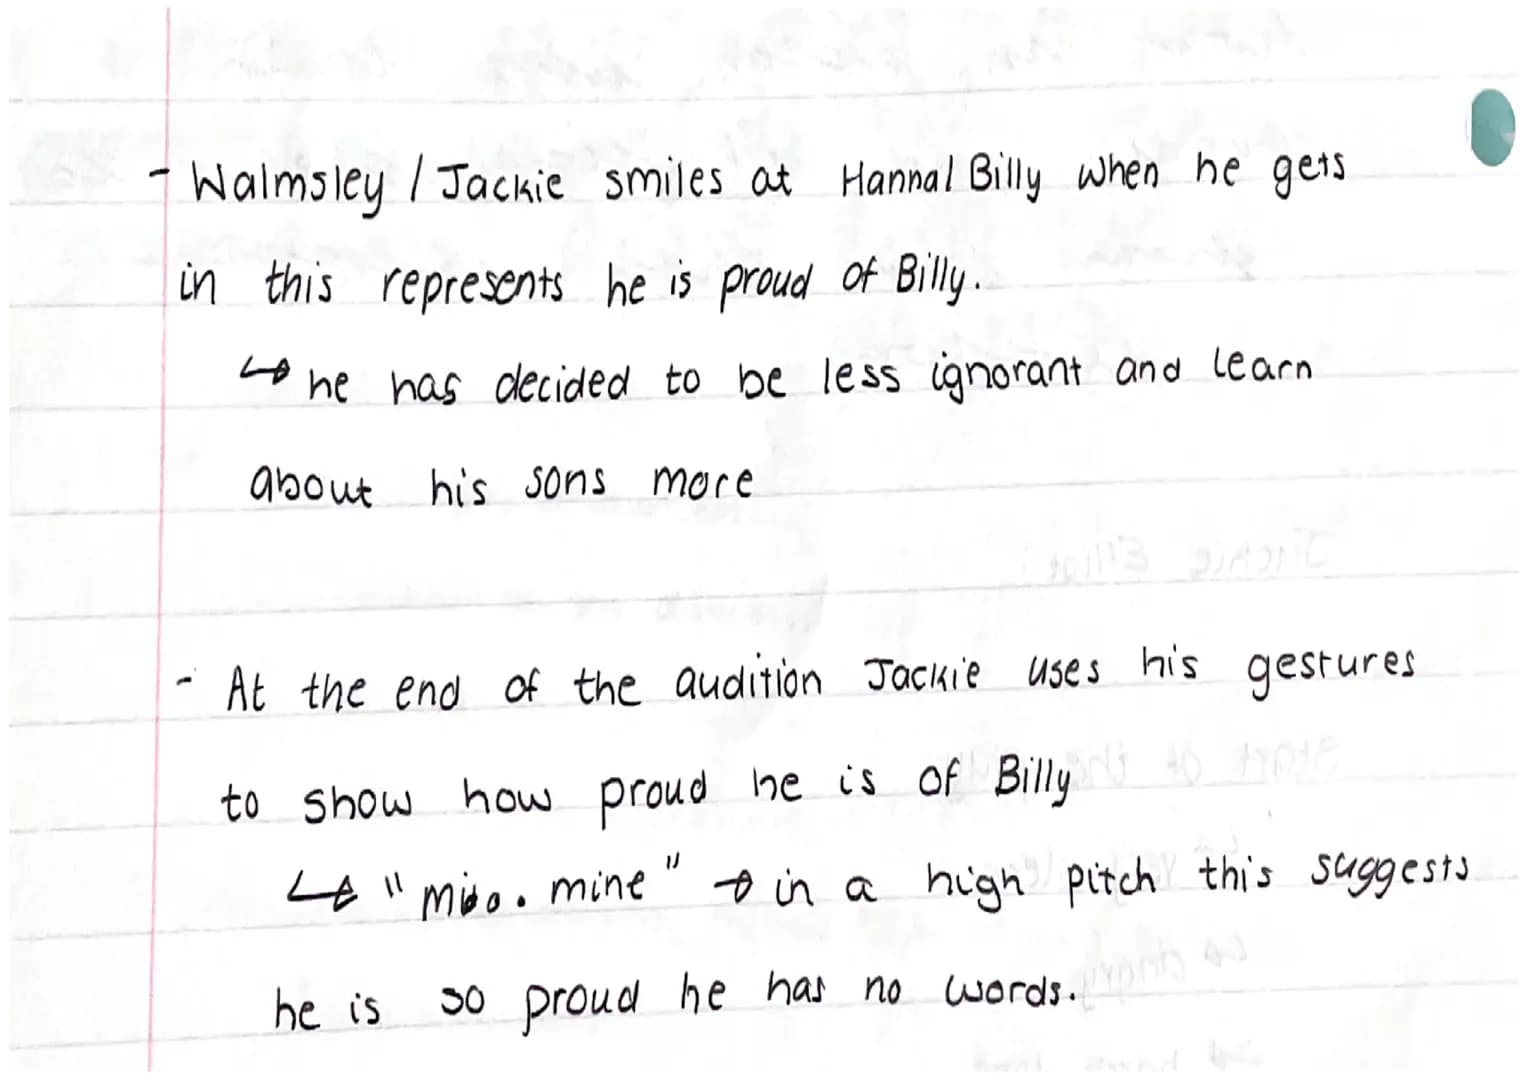 - Walmsley / Jackie smiles at Hanna/ Billy when he gets
in this represents he is proud of Billy.
↳ he has decided to be less ignorant and learn
about his sons more
- At the end of the audition Jackie uses his gestures
to show how proud he is of Billy
↳ " . mine" → in a high pitch this suggests
he is so proud he has no words.